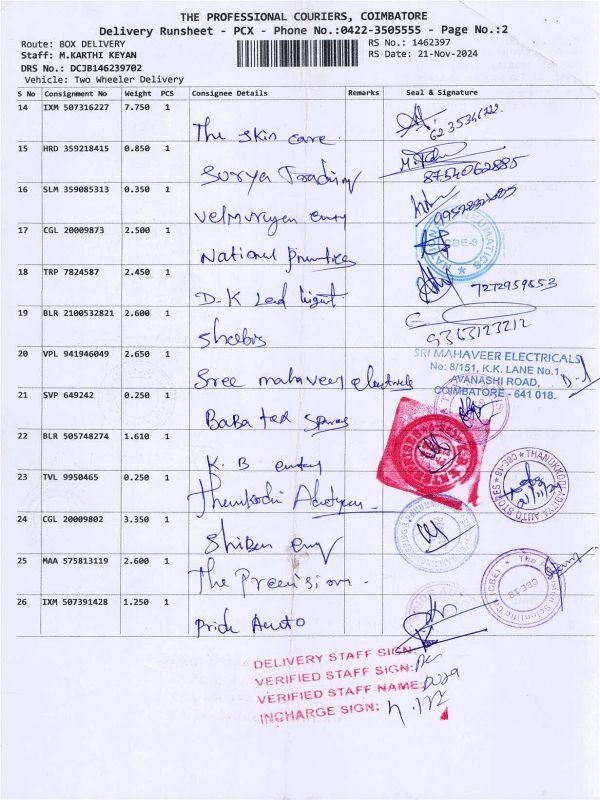 THE PROFESSIONAL COURIERS, COIMBATORE
Delivery Runsheet - PCX - Phone No.:0422-3505555 - Page No.:2
Route: BOX DELIVERY
RS No.: 1462397
Staff: M.KARTHI KEYAN
RS Date: 21-Nov-2024
DRS No.: DCJB146239702
Vehicle: Two Wheeler Delivery
S No Consignment No Weight PCS Consignee Details Remarks Seal & Signature
14 IXM 507316227 7.750 1
The skin care
15 HRD 359218415 0.850 1
Surya Trading
8754062885
16 SLM 359085313 0.350 1
Velmurugan
17 CGL 20009873 2.500 1
National
CBE-9
18 TRP 7824587 2.450 1
D-K Led light
7272959853
19 BLR 2100532821 2.600 1
9363123212
20 VPL 941946049 2.650 1
Sree mahaveer electricals
SRI MAHAVEER ELECTRICALS
No: 8/151, K.K. LANE No.1,
AVANASHI ROAD,
COIMBATORE - 641 018.
21 SVP 649242 0.250 1
Baba tex spares
22 BLR 505748274 1.610 1
K. B
23 TVL 9950465 0.250 1
THANUKKODI ADITYA AUTO STORES CBE-18
21/11/24
24 CGL 20009802 3.350 1
25 MAA 575813119 2.600 1
The Precision
CBE-18
26 IXM 507391428 1.250 1
Pride Auto
DELIVERY STAFF SIGN:
VERIFIED STAFF SIGN:
VERIFIED STAFF NAME:
INCHARGE SIGN: